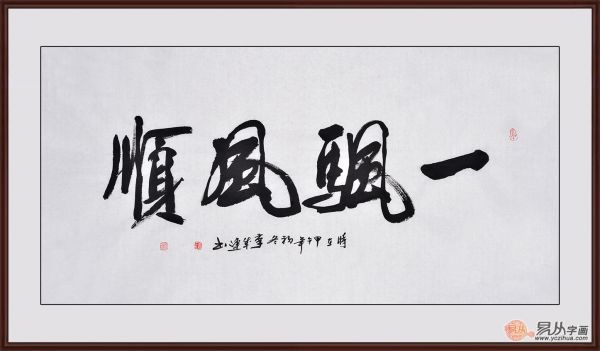 一颿風順
時在甲午年初冬李成連書
易从字画
www.yczihua.com